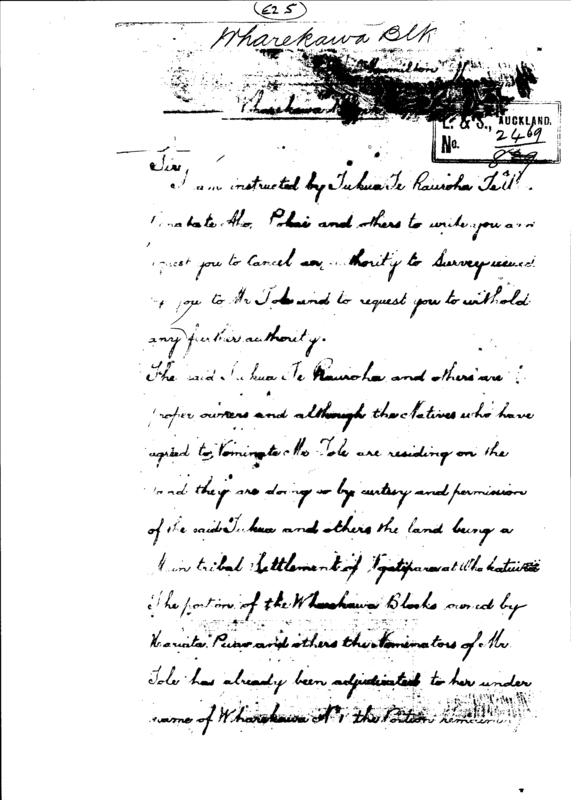 E25
Wharekawa Blk
Hamilton
Wharekawa
L. & S., AUCKLAND.
No. 2469
Sir,
I am instructed by Tukua Te Rauroha
and others to write you and
request you to Cancel an authority to Survey issued
by you to Mr Tole and to request you to withold
any further authority.
The said Tukua Te Rauroha and others are
proper owners and although the Natives who have
agreed to Nominate Mr Tole are residing on the
land they are doing so by curtesy and permission
of the said Tukua and others the land being a
Main tribal Settlement of Ngatipaoa at
The portion of the Wharekawa Blocks owned by
and others the Nominators of Mr
Tole has already been adjudicated to her under
name of Wharekawa No 1 the Portion